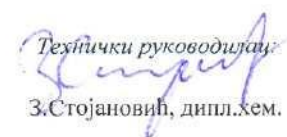 Технички руководилац:
З.Стојановић, дипл.хем.